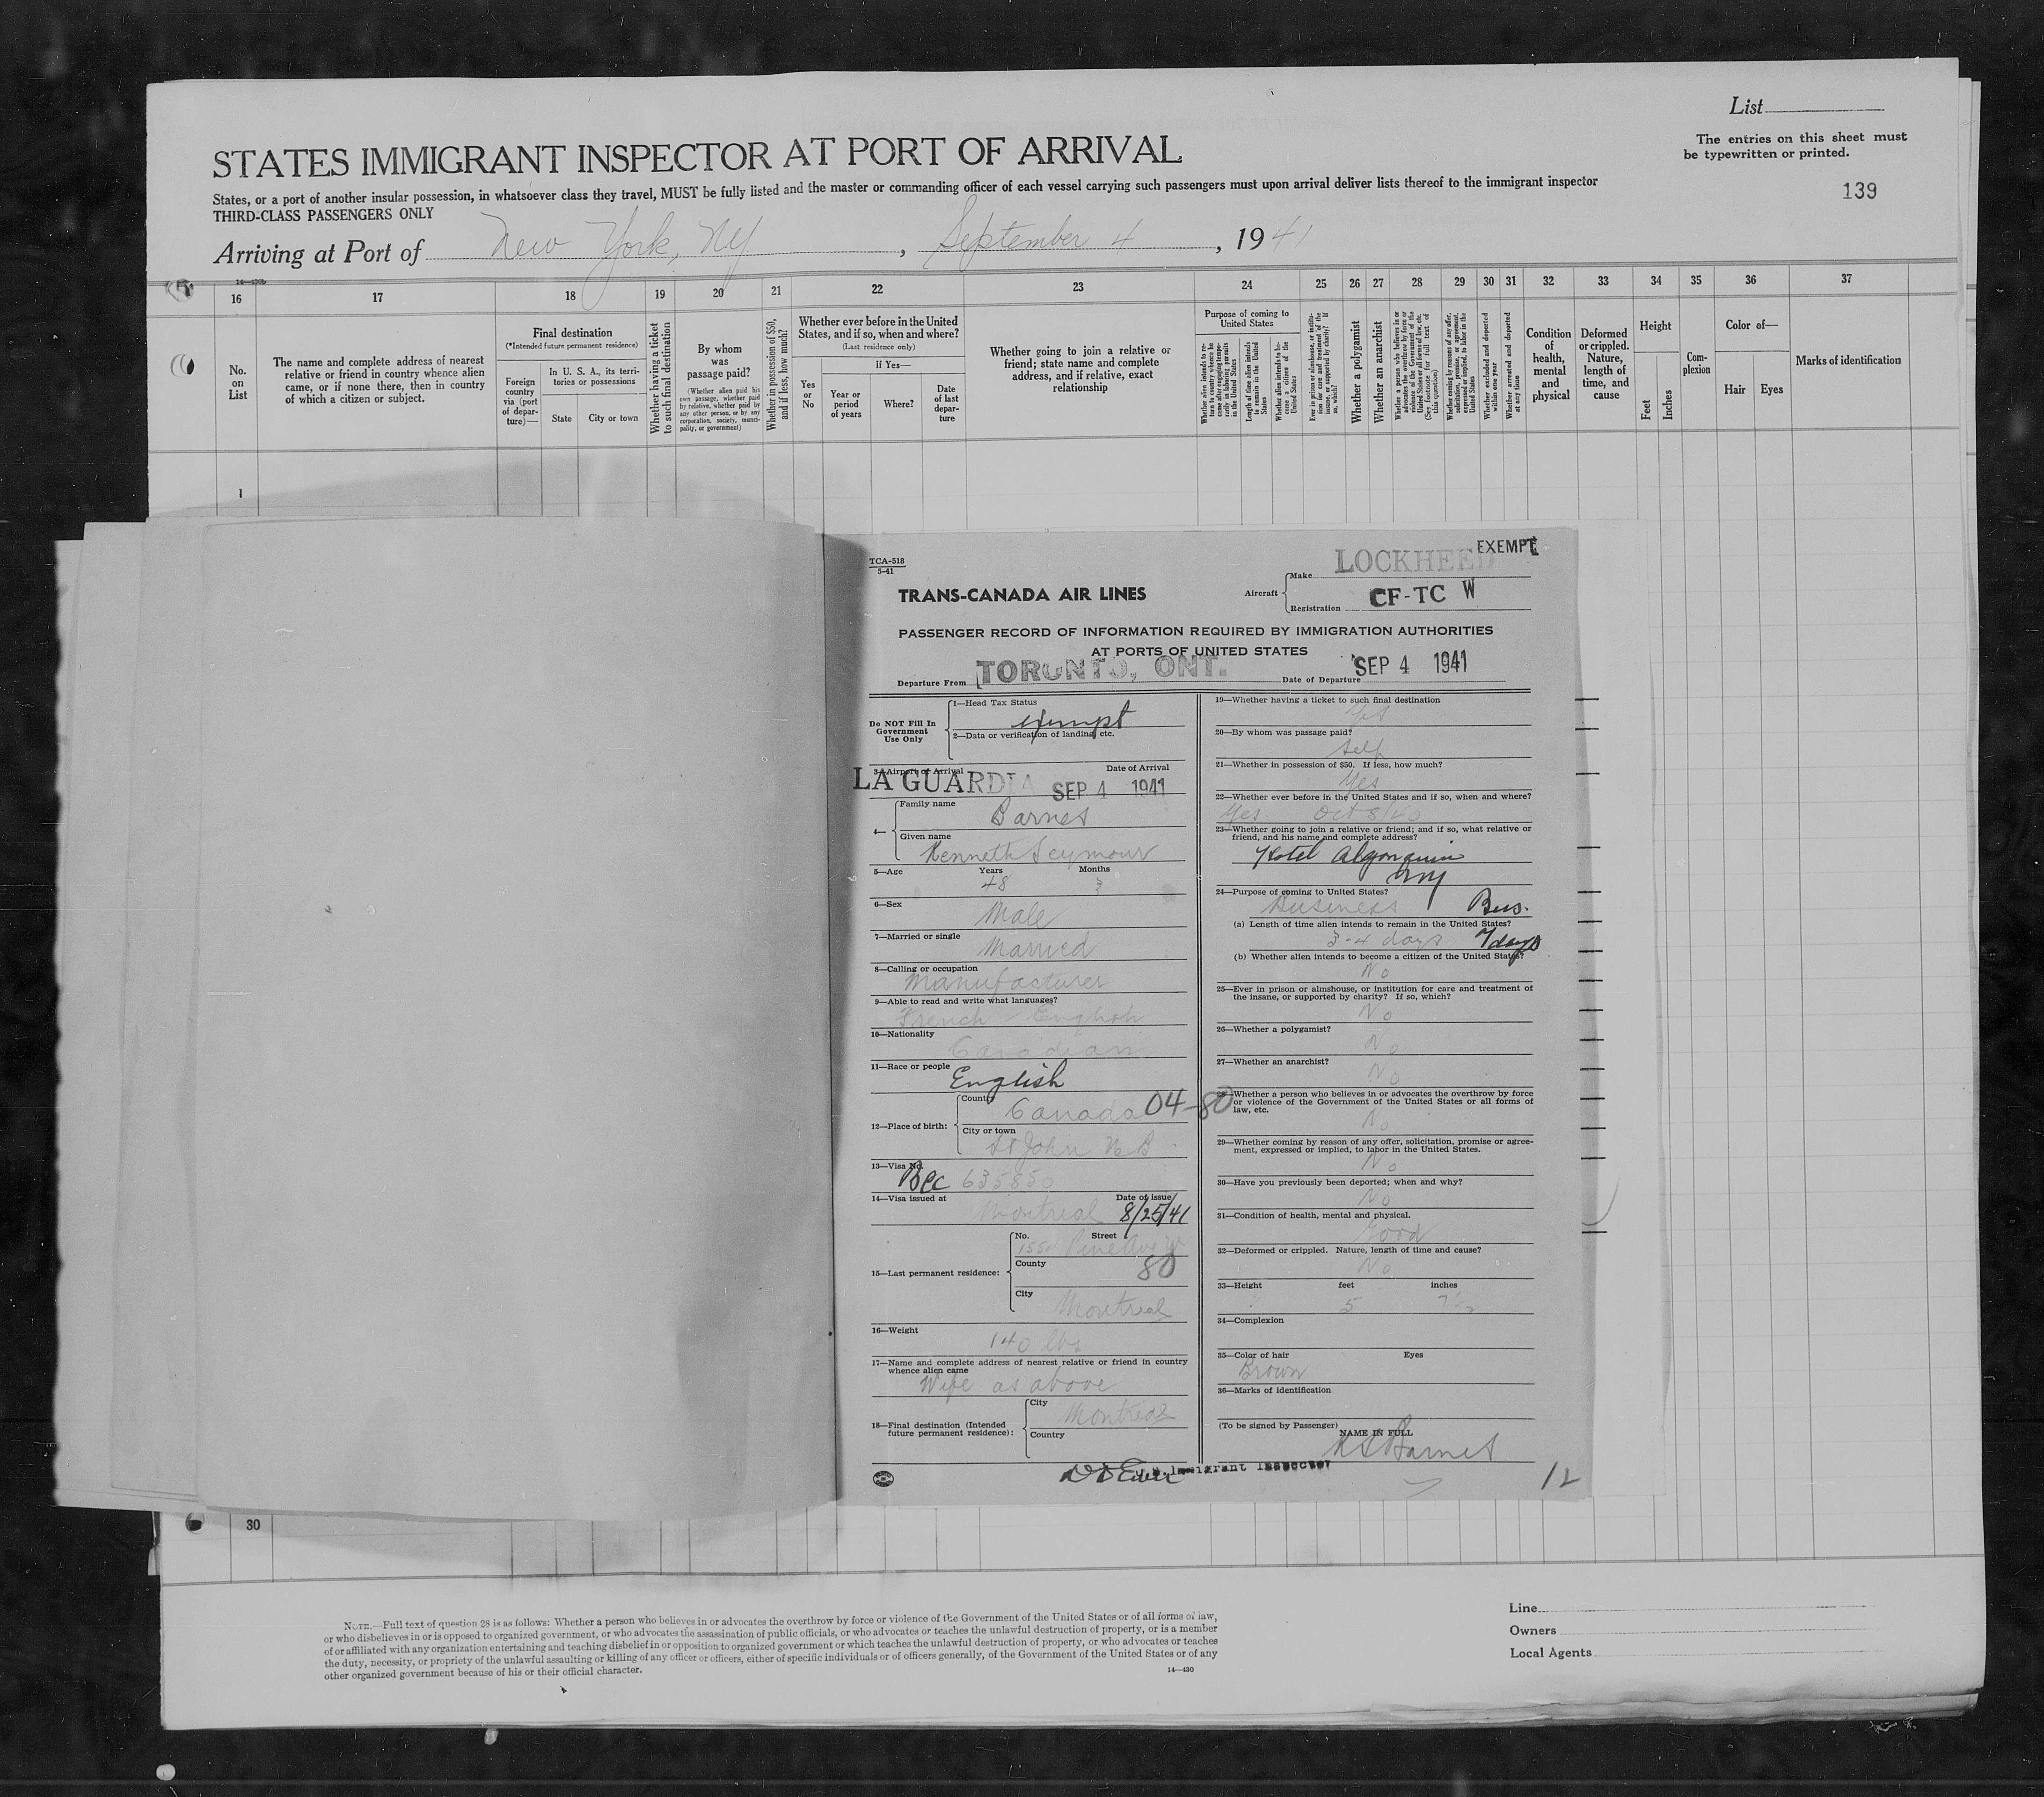 List
The entries on this sheet must
be typewritten or printed.
139
STATES IMMIGRANT INSPECTOR AT PORT OF ARRIVAL
States, or a port of another insular possession, in whatsoever class they travel, MUST be fully listed and the master or commanding officer of each vessel carrying such passengers must upon arrival deliver lists thereof to the immigrant inspector
THIRD-CLASS PASSENGERS ONLY
Arriving at Port of New York, NY, September 4, 1941
16 17 18 19 20 21 22 23 24 25 26 27 28 29 30 31 32 33 34 35 36 37
No.
on
List
The name and complete address of nearest
relative or friend in country whence alien
came, or if none there, then in country
of which a citizen or subject.
Final destination
(*Intended future permanent residence)
Foreign
country
via (port
of depar-
ture)—
In U. S. A., its terri-
tories or possessions
State
City or town
Whether having a ticket
to such final destination
By whom
was
passage paid?
(Whether alien paid his
own passage, whether paid
by relative, whether paid by
any other person, or by any
corporation, society, munici-
pality, or government)
Whether in possession of $50,
and if less, how much?
Whether ever before in the United
States, and if so, when and where?
(Last residence only)
Yes
or
No
If Yes—
Year or
period
of years
Where?
Date
of last
depar-
ture
Whether going to join a relative or
friend; state name and complete
address, and if relative, exact
relationship
Purpose of coming to
United States
Whether alien intends to re-
turn to country whence he
came after engaging tempo-
rarily in laboring pursuits
in the United States
Length of time alien intends
to remain in the United
States
Whether alien intends to be-
come a citizen of the
United States
Ever in prison or almshouse, or institu-
tion for care and treatment of the
insane, or supported by charity? If
so, which?
Whether a polygamist
Whether an anarchist
Whether a person who believes in or
advocates the overthrow by force or
violence of the Government of the
United States or all forms of law, etc.
(See footnote for full text of
this question)
Whether coming by reasons of any offer,
solicitation, promise, or agreement,
expressed or implied, to labor in the
United States
Whether excluded and deported
within one year
Whether arrested and deported
at any time
Condition
of
health,
mental
and
physical
Deformed
or crippled.
Nature,
length of
time, and
cause
Height
Feet
Inches
Com-
plexion
Color of—
Hair
Eyes
Marks of identification
1
TCA-518
5-41
EXEMPT
TRANS-CANADA AIR LINES
Aircraft
Make LOCKHEED
Registration CF-TC W
PASSENGER RECORD OF INFORMATION REQUIRED BY IMMIGRATION AUTHORITIES
AT PORTS OF UNITED STATES
Departure From TORONTO, ONT.
Date of Departure SEP 4 1941
Do NOT Fill In
Government
Use Only
1—Head Tax Status
exempt
2—Data or verification of landing etc.
3—Airport of Arrival
Date of Arrival
LA GUARDIA SEP 4 1941
4—
Family name
Barnes
Given name
Kenneth Seymour
5—Age Years Months
48 3
6—Sex
Male
7—Married or single
Married
8—Calling or occupation
Manufacturer
9—Able to read and write what languages?
French / English
10—Nationality
Canadian
11—Race or people
English
12—Place of birth:
County
Canada 04-80
City or town
St John N B
13—Visa No.
Bcc 635850
14—Visa issued at Date of issue
Montreal 8/25/41
15—Last permanent residence:
No. Street
Pine Ave W
County
80
City
Montreal
16—Weight
140 lbs
17—Name and complete address of nearest relative or friend in country
whence alien came
Wife as above
18—Final destination (Intended
future permanent residence):
City
Montreal
Country
19—Whether having a ticket to such final destination
Yes
20—By whom was passage paid?
Self
21—Whether in possession of $50. If less, how much?
Yes
22—Whether ever before in the United States and if so, when and where?
Yes Oct 8/40
23—Whether going to join a relative or friend; and if so, what relative or
friend, and his name and complete address?
Hotel Algonquin
NY
24—Purpose of coming to United States?
Business Bus.
(a) Length of time alien intends to remain in the United States?
3-4 days 7 days
(b) Whether alien intends to become a citizen of the United States?
No
25—Ever in prison or almshouse, or institution for care and treatment of
the insane, or supported by charity? If so, which?
No
26—Whether a polygamist?
No
27—Whether an anarchist?
No
Whether a person who believes in or advocates the overthrow by force
or violence of the Government of the United States or all forms of
law, etc.
No
29—Whether coming by reason of any offer, solicitation, promise or agree-
ment, expressed or implied, to labor in the United States.
No
30—Have you previously been deported; when and why?
No
31—Condition of health, mental and physical.
Good
32—Deformed or crippled. Nature, length of time and cause?
No
33—Height feet inches
5 7½
34—Complexion
35—Color of hair Eyes
Brown
36—Marks of identification
(To be signed by Passenger)
NAME IN FULL
K S Barnes
Immigrant Inspector
12
30
NOTE.—Full text of question 28 is as follows: Whether a person who believes in or advocates the overthrow by force or violence of the Government of the United States or of all forms of law,
or who disbelieves in or is opposed to organized government, or who advocates the assassination of public officials, or who advocates or teaches the unlawful destruction of property, or is a member
of or affiliated with any organization entertaining and teaching disbelief in or opposition to organized government or which teaches the unlawful destruction of property, or who advocates or teaches
the duty, necessity, or propriety of the unlawful assaulting or killing of any officer or officers, either of specific individuals or of officers generally, of the Government of the United States or of any
other organized government because of his or their official character.
14—430
Line
Owners
Local Agents